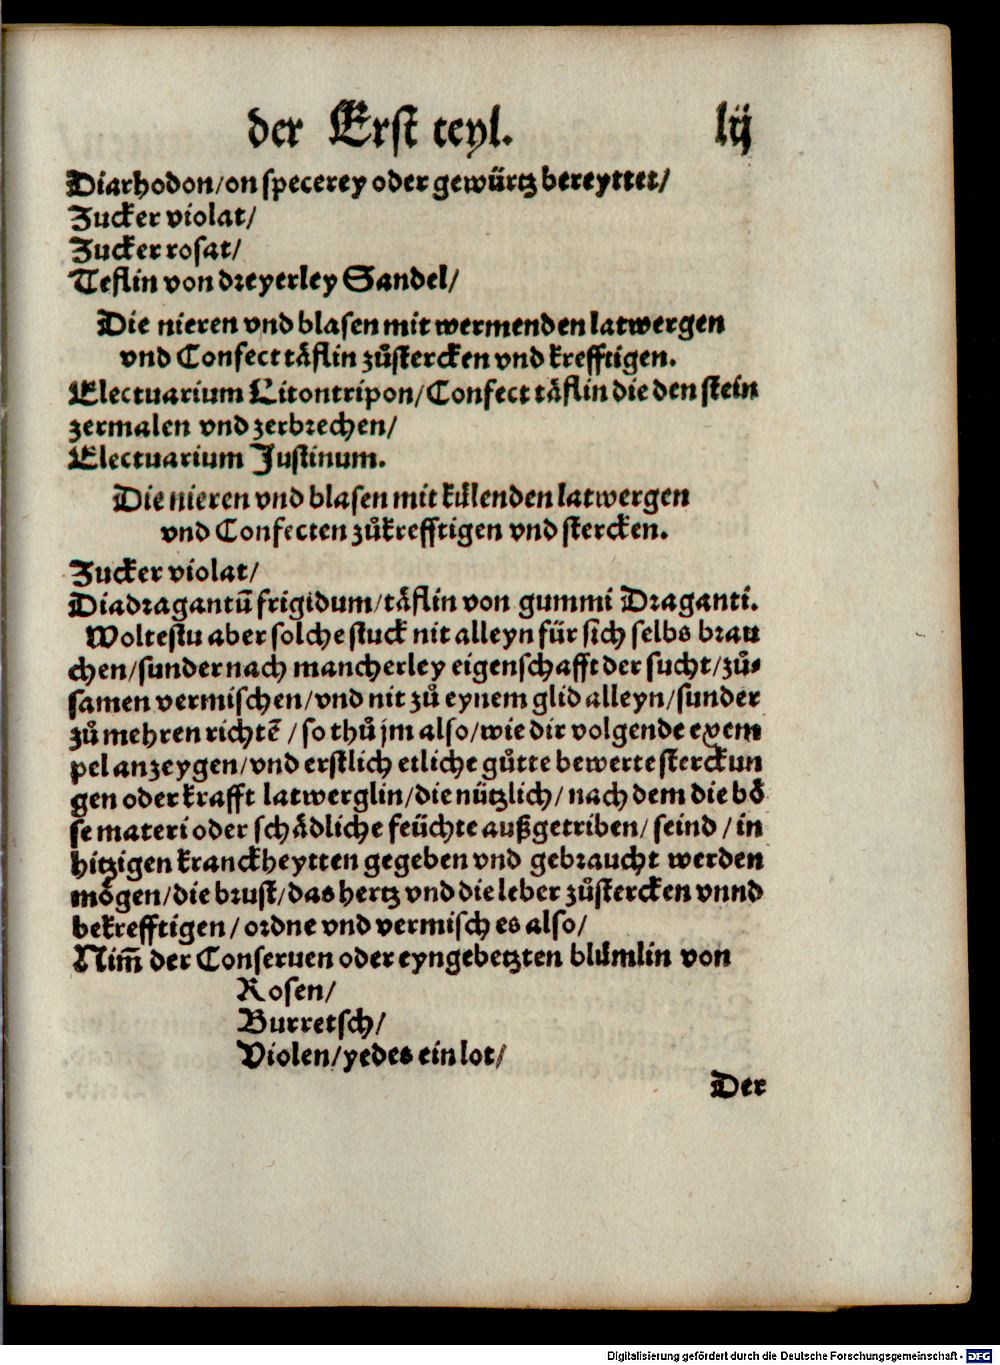 der Erst teyl. lij
Diarhodon/on specerey oder gewürtz bereyttet/
Zucker violat/
Zucker rosat/
Teflin von dreyerley Sandel/
Die nieren vnd blasen mit wermenden latwergen
vnd Confect täflin zůstercken vnd krefftigen.
Electuarium Litontripon/Confect täflin die den stein
zermalen vnd zerbrechen/
Electuarium Justinum.
Die nieren vnd blasen mit kůlenden latwergen
vnd Confecten zůkrefftigen vnd stercken.
Zucker violat/
Diadragantū frigidum/täflin von gummi Draganti.
Woltestu aber solche stuck nit alleyn für sich selbs brau
chen/sunder nach mancherley eigenschafft der sucht/zů⸗
samen vermischen/vnd nit zů eynem glid alleyn/sunder
zů mehren richtē/so thů jm also/wie dir volgende exem
pel anzeygen/vnd erstlich etliche gůtte bewerte sterckun
gen oder krafft latwerglin/die nützlich/nach dem die bö
se materi oder schädliche feüchte außgetriben/seind/in
hitzigen kranckheytten gegeben vnd gebraucht werden
mögen/die brust/das hertz vnd die leber zůstercken vnnd
bekrefftigen/ordne vnd vermisch es also/
Nim̄ der Conseruen oder eyngebetzten blůmlin von
Rosen/
Burretsch/
Violen/yedes ein lot/
Der
Digitalisierung gefördert durch die Deutsche Forschungsgemeinschaft - DFG